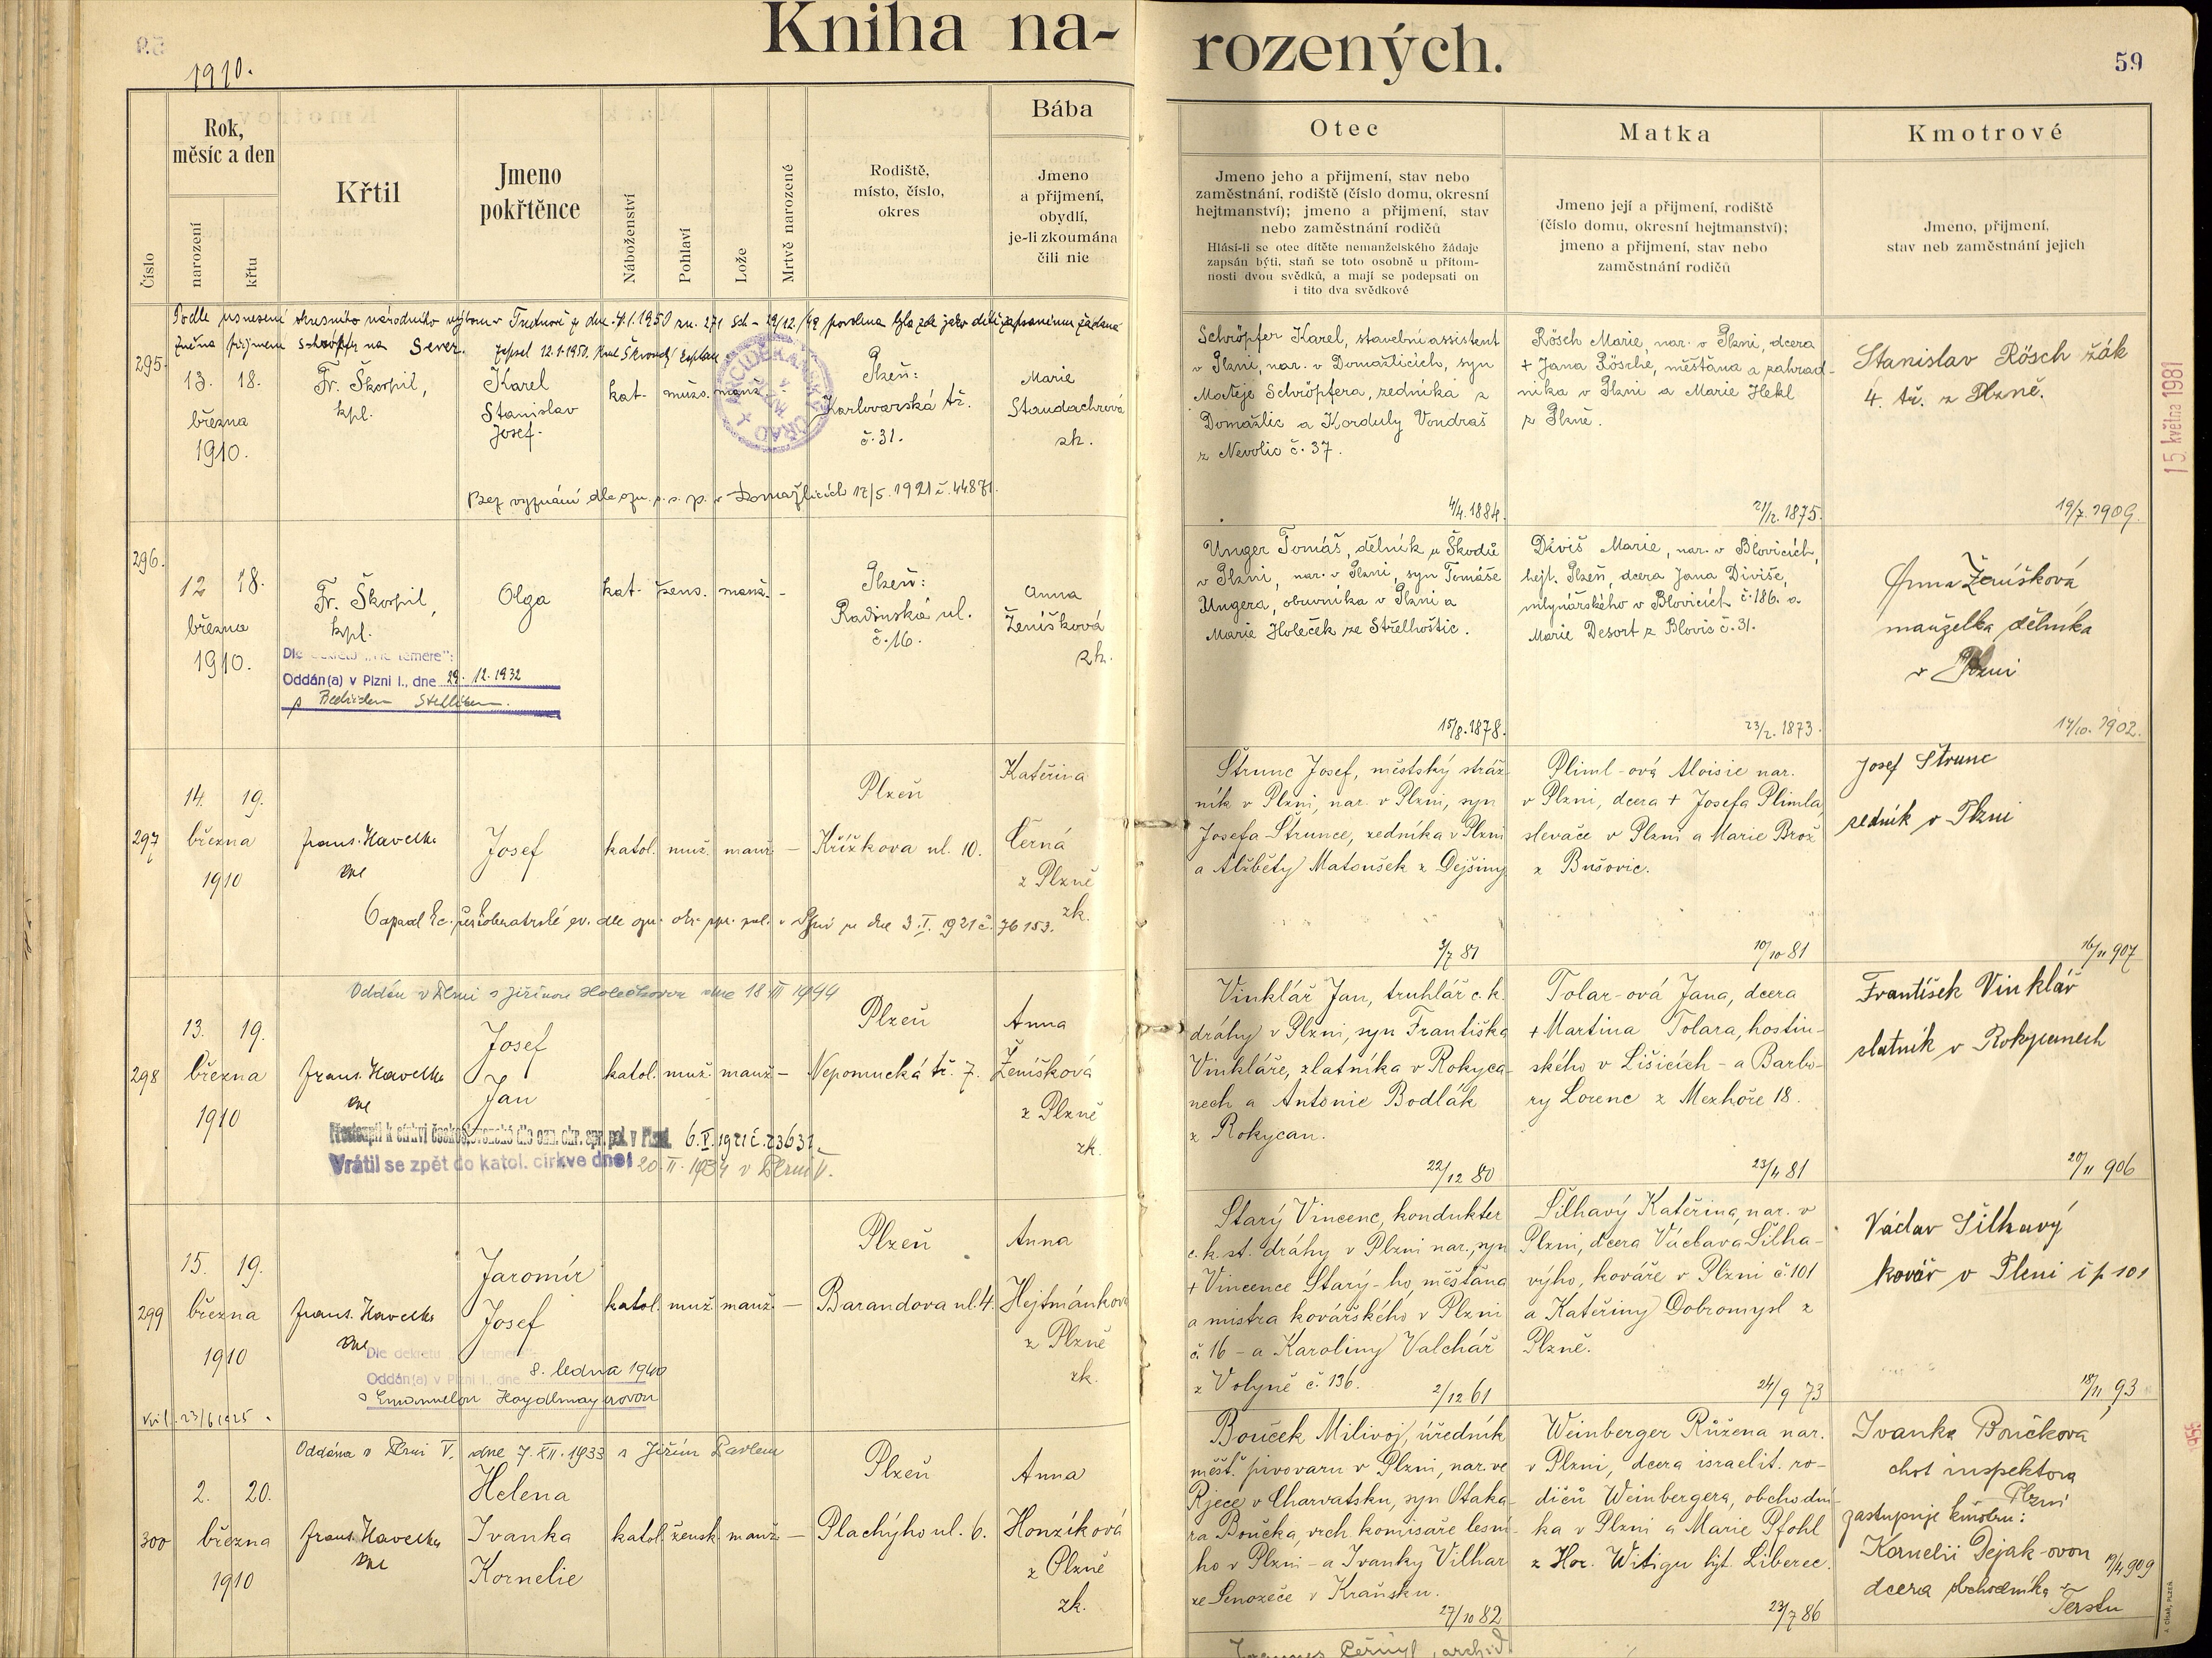 Kniha na-
rozených.
59
1910.
Rok,
měsíc a den
Číslo
narození
křtu
Křtil
Jmeno
pokřtěnce
Náboženství
Pohlaví
Lože
Mrtvě narozené
Rodiště,
místo, číslo,
okres
Bába
Jmeno
a příjmení,
obydlí,
je-li zkoumána
čili nie
Otec
Jmeno jeho a přijmení, stav nebo
zaměstnání, rodiště (číslo domu, okresní
hejtmanství); jmeno a přijmení, stav
nebo zaměstnání rodičů
Hlásí-li se otec dítěte nemanželského žádaje
zapsán býti, staň se toto osobně u přítom-
nosti dvou svědků, a mají se podepsati on
i tito dva svědkové
Matka
Jmeno její a přijmení, rodiště
(číslo domu, okresní hejtmanství);
jmeno a přijmení, stav nebo
zaměstnání rodičů
Kmotrové
Jmeno, přijmení,
stav neb zaměstnání jejich
Podle usnesení okresního národního výboru v Trutnově ze dne
změna příjmení Schröpfer na Sever. Zapsal 12.1.1950.
295.
13. 18.
března
1910.
Fr. Škorpil,
kpl.
Karel
Stanislav
Josef.
kat. mužs. manž. -
Plzeň:
Karlovarská tř.
č. 31.
Marie
Staudachrová
zk.
Bez vyznání dle ozn. o. s. p. v Domažlicích 12/5. 1921 č. 44871.
Schröpfer Karel, stavební assistent
v Plzni, nar. v Domažlicích, syn
Matěje Schröpfera, zedníka z
Domažlic a Korduly Vondraš
z Nevolic č. 37.
4/4. 1884.
Rösch Marie, nar. v Plzni, dcera
+ Jana Rösche, měšťana a zahrad-
níka v Plzni a Marie Hekl
z Plzně.
21/12. 1875.
Stanislav Rösch žák
4. tř. z Plzně.
19/7. 1909.
15. května 1981
296.
12 18.
března
1910.
Fr. Škorpil,
kpl.
Olga
kat. žens. manž. -
Plzeň:
Radinská ul.
č. 16.
Anna
Ženíšková
zk.
Dle dekretu „Ne temere":
Oddán(a) v Plzni I., dne 29. 12. 1932
s Bedřichem
Unger Tomáš, dělník u Škodů
v Plzni, nar. v Plzni, syn Tomáše
Ungera, obuvníka v Plzni a
Marie Holeček ze Střelhoštic.
15/8. 1878.
Diviš Marie, nar. v Blovicích,
hejt. Plzeň, dcera Jana Diviše,
mlynářského v Blovicích č. 186. a
Marie Desort z Blovic č. 31.
23/2. 1873.
Anna Ženíšková
manželka dělníka
v Plzni
14/10. 1902.
297
14. 19.
března
1910
Frant. Havelka
Josef
katol. muž. manž. —
Plzeň
Křížkova ul. 10.
Kateřina
Černá
z Plzně
zk.
dne 3. I. 1921 č. 76153.
Štrunc Josef, městský stráž-
ník v Plzni, nar. v Plzni, syn
Josefa Štrunce, zedníka v Plzni
a Alžběty Matoušek z Dejšiny
3/7 81
Pliml-ová Aloisie nar.
v Plzni, dcera + Josefa Plimla,
slevače v Plzni a Marie Brož
z Bušovic.
10/10 81
Josef Štrunc
zedník v Plzni
16/11 907
298
Oddán v Plzni s Jiřinou Holečkovou dne 18. III 1944
13. 19.
března
1910
Frant. Havelka
Josef
Jan
katol. muž. manž —
Plzeň
Nepomucká tř. 7.
Anna
Ženíšková
z Plzně
zk.
Přestoupil k církvi československé dle ozn. okr. spr. pol. v Plzni 6. I. 1921 č. 73631
Vrátil se zpět do katol. církve dne: 20. II. 1934 v Plzni V.
Vinklář Jan, truhlář c. k.
dráhy v Plzni, syn Františka
Vinkláře, zlatníka v Rokyca-
nech a Antonie Bodlák
z Rokycan.
22/12 80
Tolar-ová Jana, dcera
+ Martina Tolara, hostin-
ského v Lišicích - a Barbo-
ry Lorenc z Mezhoře 18.
23/4 81
František Vinklář
zlatník v Rokycanech
20/11 906
299
15. 19.
března
1910
Frant. Havelka
Jaromír
Josef
katol. muž. manž. —
Plzeň
Barandova ul. 4.
Anna
Hejtmánková
z Plzně
zk.
Dle dekretu „Ne temere":
Oddán(a) v Plzni I., dne 8. ledna 1940
s Emanuelou Haydlmayerovou
23/6 1925.
Starý Vincenc, kondukter
c. k. st. dráhy v Plzni nar., syn
+ Vincence Starý-ho, měšťana
a mistra kovářského v Plzni
č. 16 - a Karoliny Valchář
z Volyně č. 136.
2/12 61
Šilhavý Kateřina, nar. v
Plzni, dcera Václava Šilha-
výho, kováře v Plzni č. 101
a Kateřiny Dobromysl z
Plzně.
24/9 73
Václav Šilhavý
kovář v Plzni čp 101
18/11 93
300
Oddána v Plzni V. dne 7. XII. 1933 s Jiřím Pavlem
2. 20.
března
1910
Frant. Havelka
Helena
Ivanka
Kornelie
katol. žensk. manž —
Plzeň
Plachýho ul. 6.
Anna
Honzíková
z Plzně
zk.
Bouček Milivoj, úředník
měšť. pivovaru v Plzni, nar. ve
Rjece v Charvatsku, syn Otaka-
ra Boučka, vrch. komisaře lesní-
ho v Plzni - a Ivanky Vilhar
ze Senožeče v Kraňsku.
27/10 82
Weinberger Růžena nar.
v Plzni, dcera israelit. ro-
dičů Weinbergera, obchodní-
ka v Plzni a Marie Pfohl
z Hor. Witigu hjt. Liberec.
23/7 86
Ivanka Boučková
choť inspektora
Plzni
zastupuje kmotru:
Kornelii Dejak-ovou
dcera obchodníka v
Terstu
19/4 909